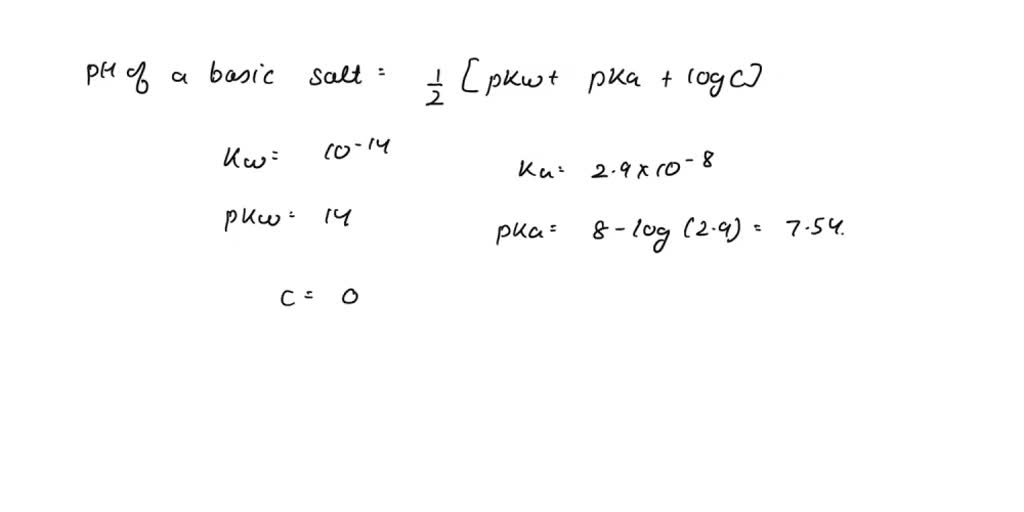 pH of a basic salt = 1/2 [pKw + pKa + log C]
Kw = 10^-14
Ka = 2.9 x 10^-8
pKw = 14
pKa = 8 - log (2.9) = 7.54.
C = 0